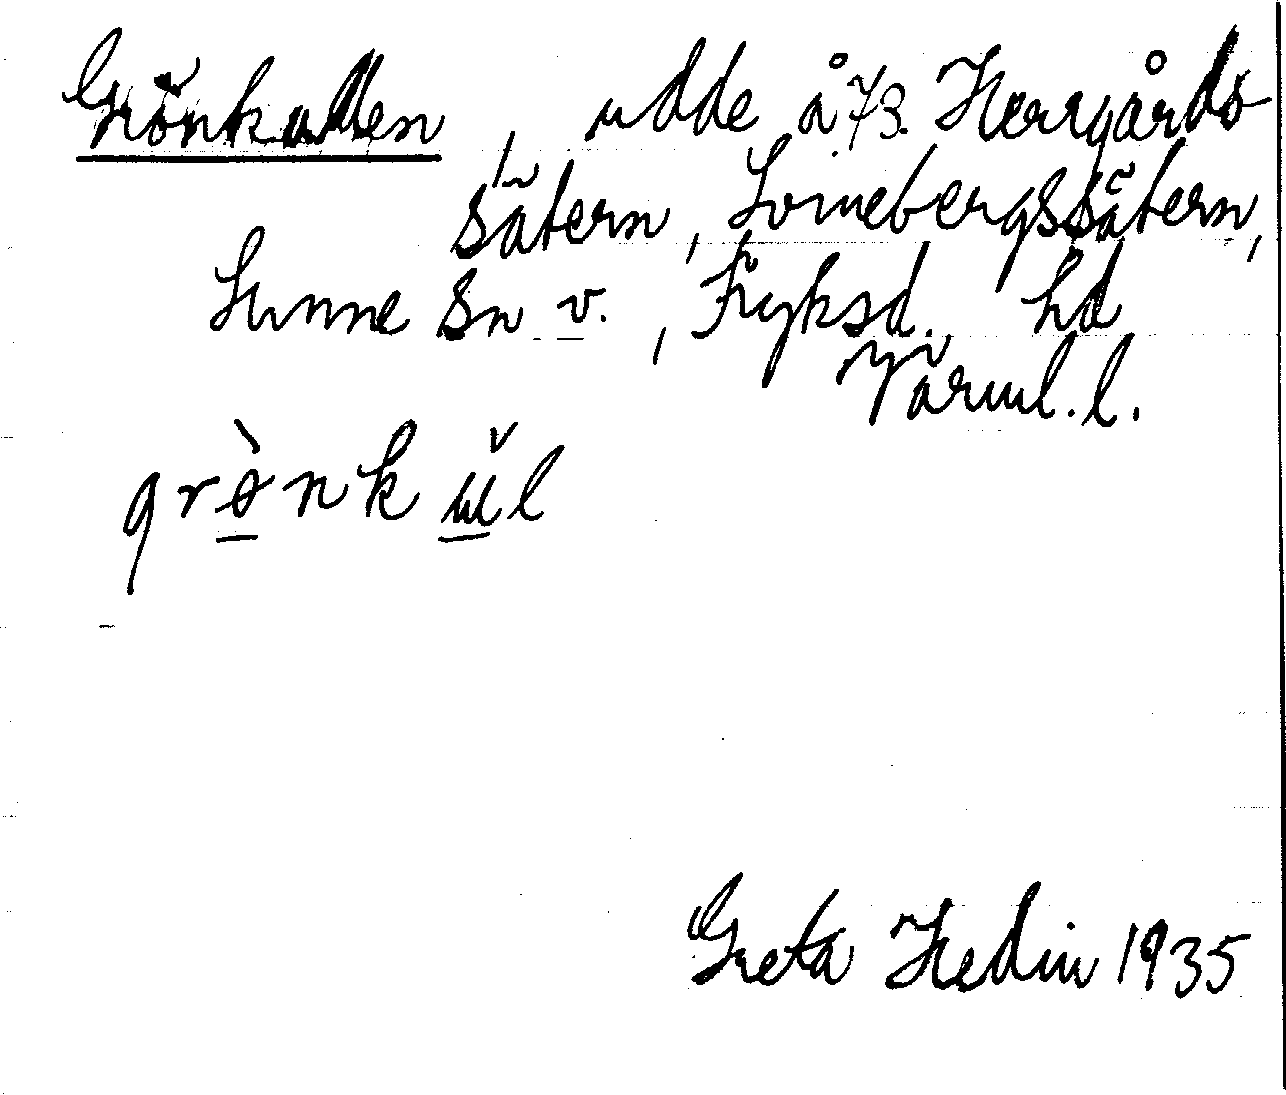 Grönkullen, udde å 73. Herrgårds
sätern, Lornebergssätern,
Sunne sn v., Fryksd. hd
Värml. l.
grò̱nkŭ̱l
Greta Hedin 1935